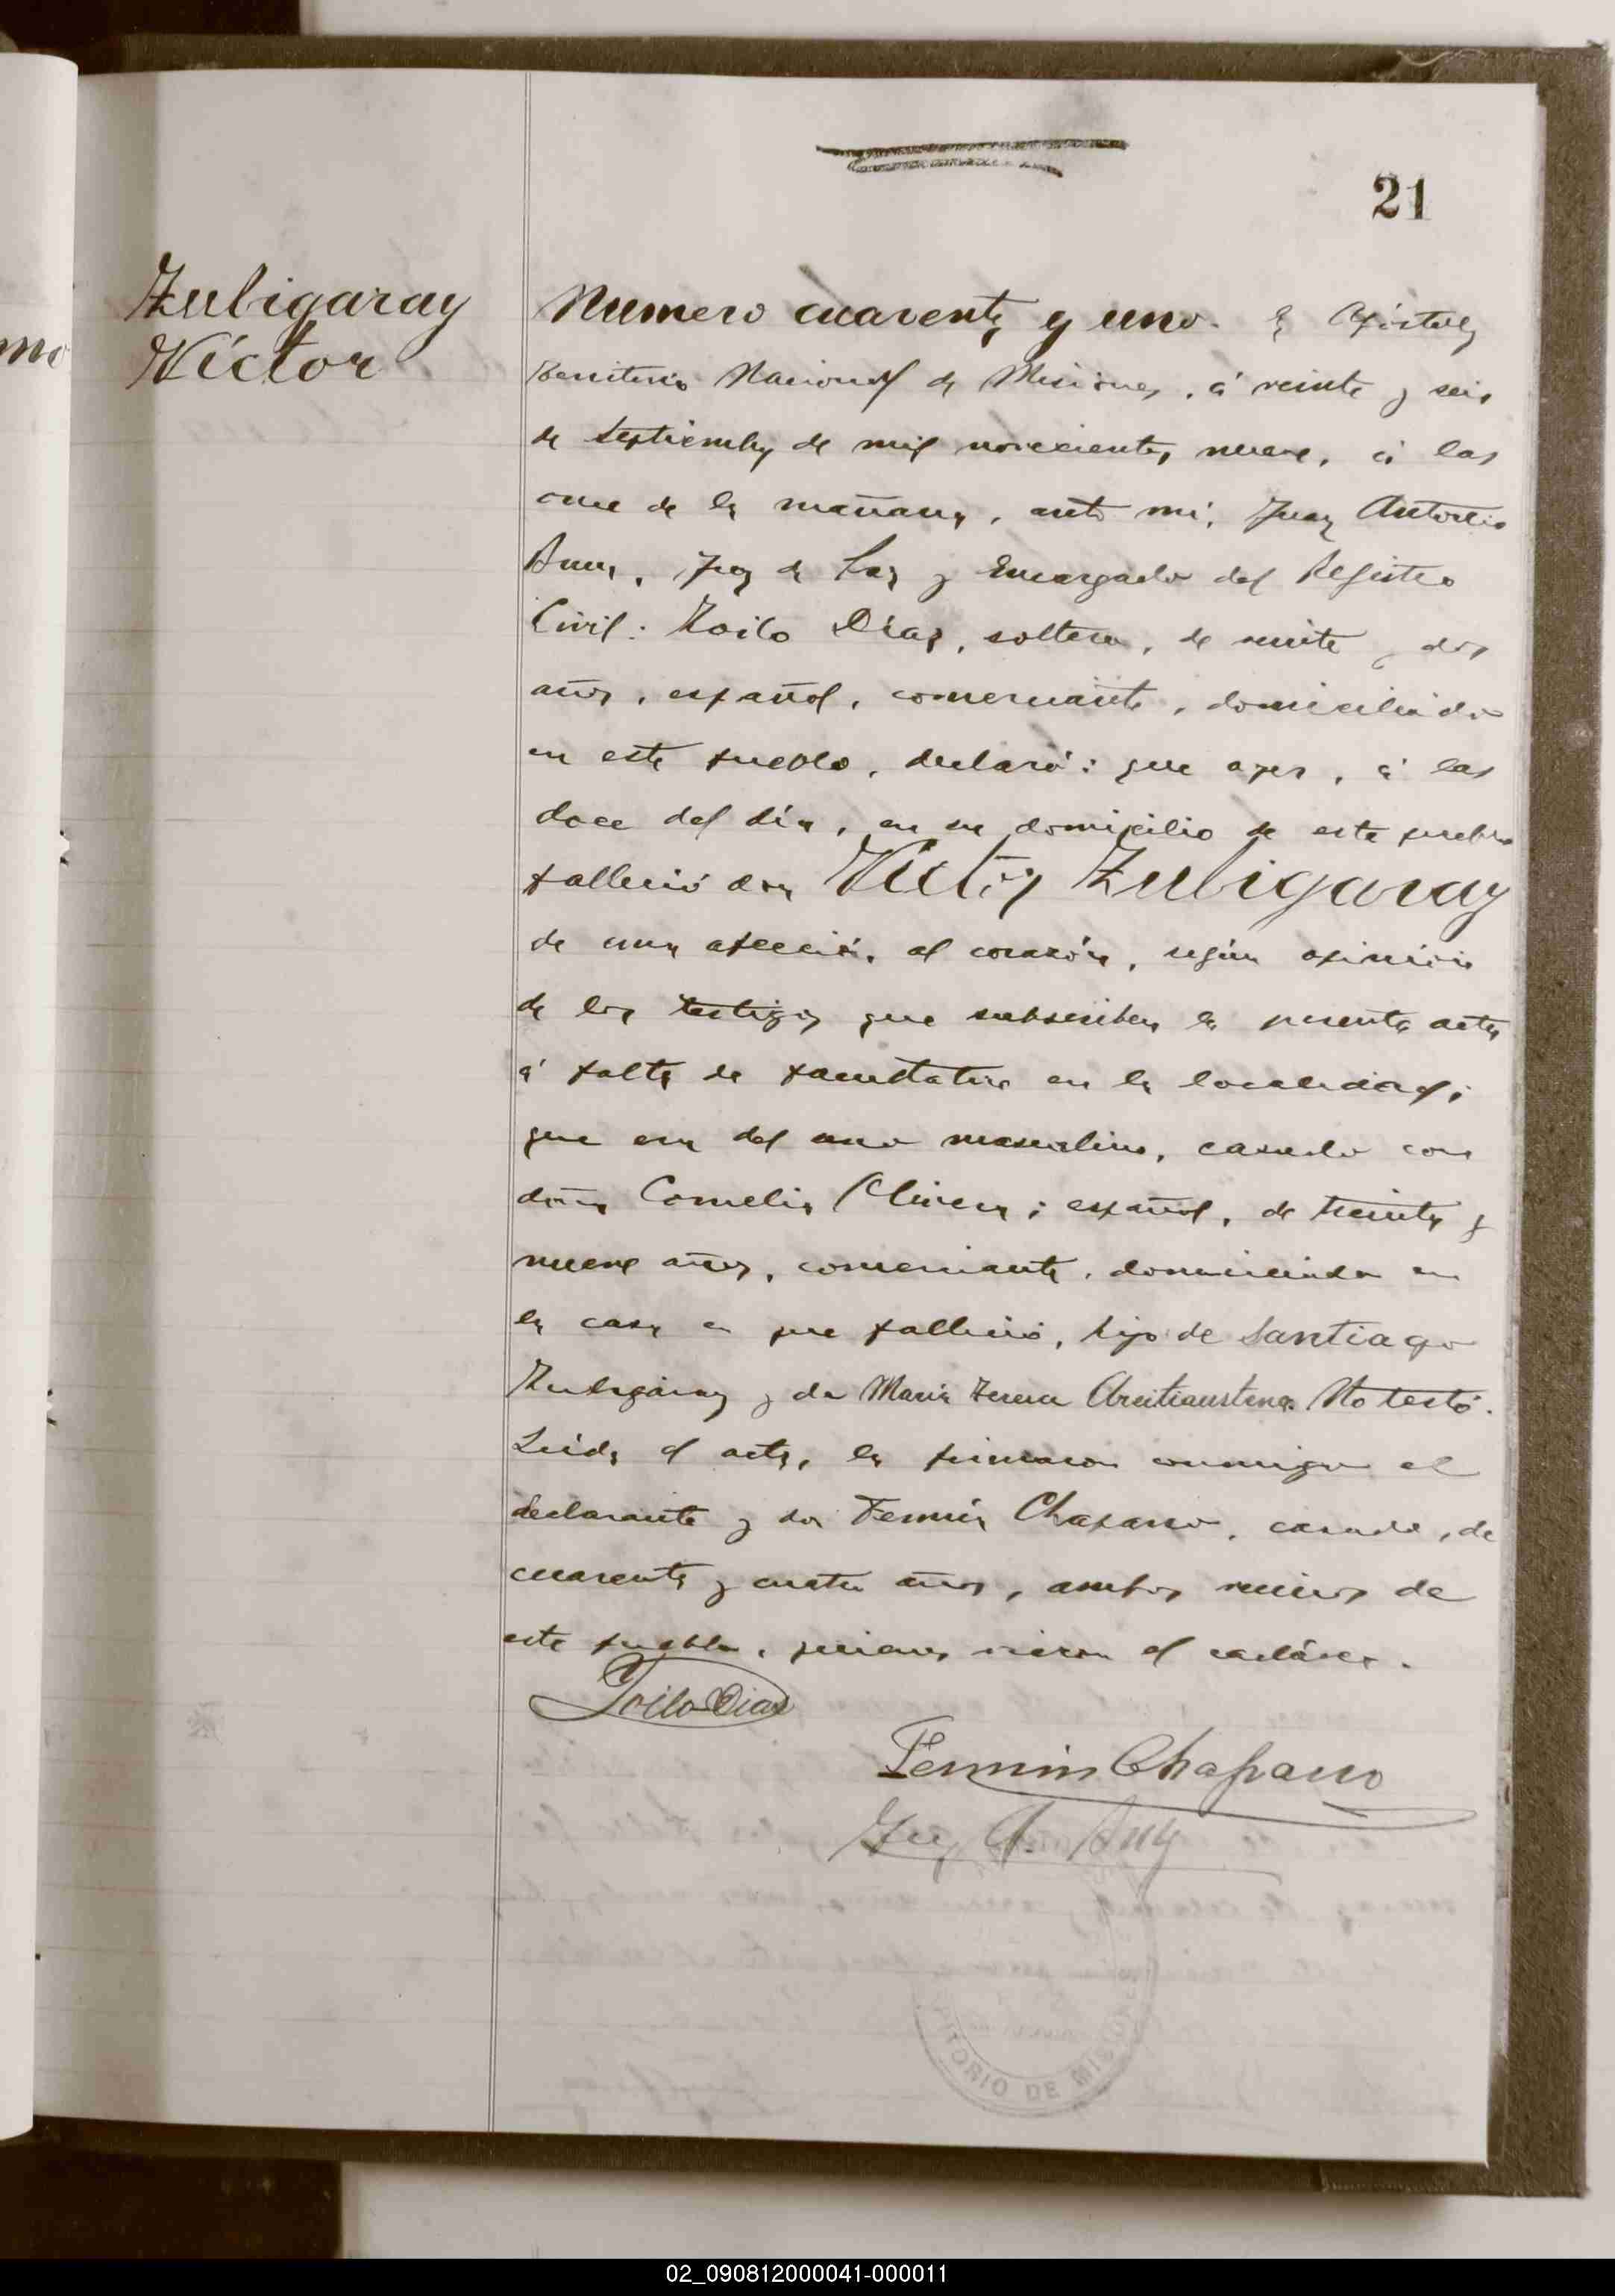 21
Zubigaray
Víctor
Numero cuarenta y uno. En Apóstoles
Territorio Nacional de Misiones, á veinte y seis
de Septiembre de mil novecientos nueve, á las
once de la mañana, ante mí, Juan Antonio
Juez de Paz y Encargado del Registro
Civil: Zoilo Díaz, soltero, de veinte y dos
años, español, comerciante, domiciliado
en este pueblo, declaró: que ayer, á las
doce del día, en su domicilio de este pueblo
falleció don Víctor Zubigaray
de una afección al corazón, según opinión
de los testigos que subscriben la presente acta
á falta de facultativo en la localidad;
que era del sexo masculino, casado con
doña Comelia Olivera; español, de treinta y
nueve años, comerciante, domiciliado en
la casa en que falleció, hijo de Santiago
Zubigaray y de María Teresa No testó.
Leída el acta, la firmaron conmigo el
declarante y don Fermín Chaparro, casado, de
cuarenta y cuatro años, ambos vecinos de
este pueblo, quienes vieron el cadáver.
Zoilo Diaz
Fermin Chaparro
Juan A.
RITORIO DE MISIONE
02_090812000041-000011